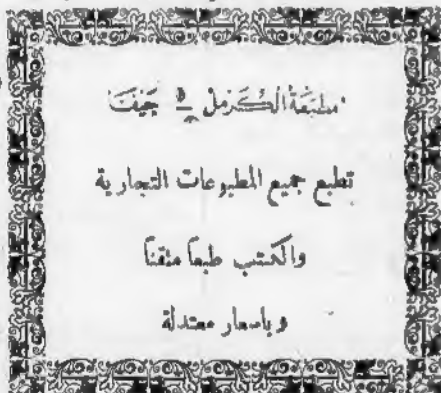 مطبعة الكرمل في حيفا
تطبع جميع المطبوعات التجارية
والكتب طبعاً متقناً
وباسعار معتدلة